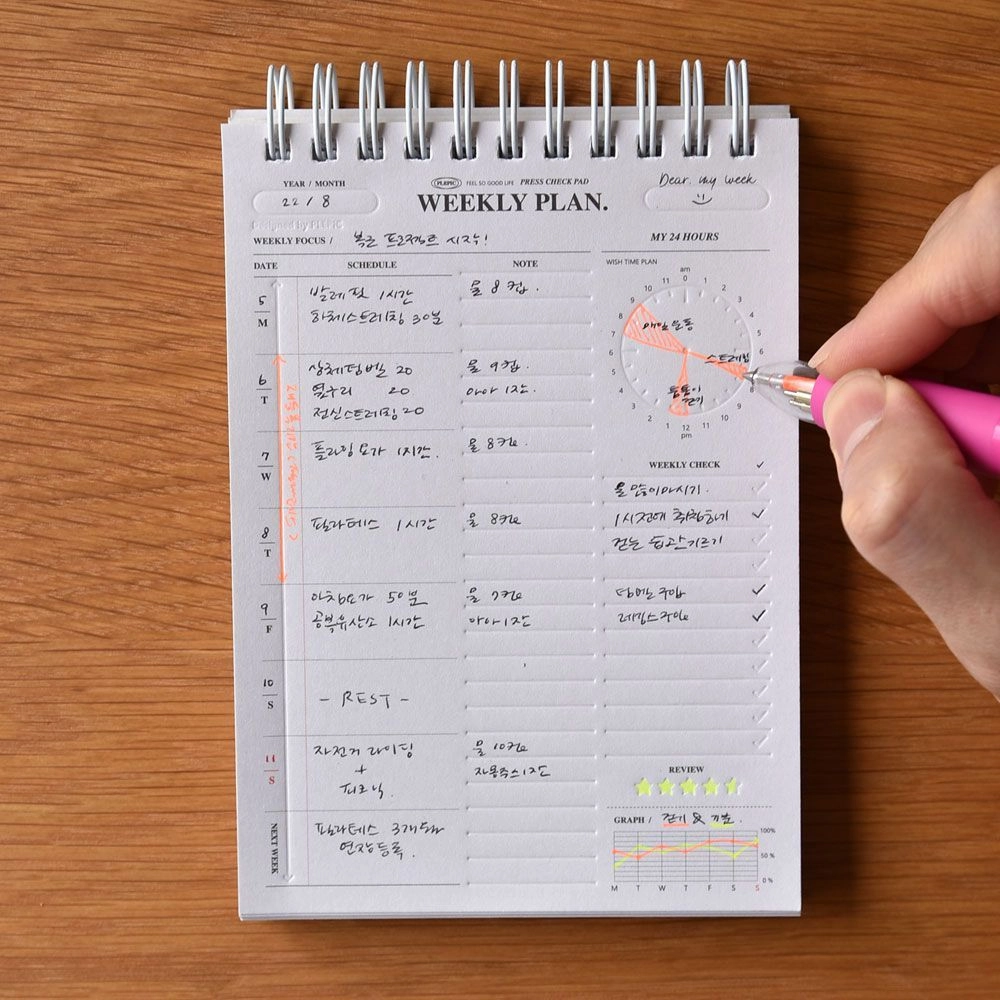 YEAR / MONTH
22 / 8
PLEPIC FEEL SO GOOD LIFE PRESS CHECK PAD
WEEKLY PLAN.
Dear. my week
Designed by PLEPIC
WEEKLY FOCUS / 복근 프로젝트 시작!
DATE SCHEDULE NOTE
5 M
발레핏 1시간 물 8컵.
하체스트레칭 30분
6 T
상체덤벨 20 물 9컵.
옆구리 20 아아 1잔.
전신스트레칭 20
7 W
플라잉요가 1시간. 물 8컵
8 T
필라테스 1시간 물 8컵
9 F
아침요가 50분 물 7컵
공복유산소 1시간 아아 1잔
10 S
- REST -
11 S
자전거 라이딩 물 10컵
+ 자몽주스 1잔
피크닉.
NEXT WEEK
필라테스 3개월
연장등록.
MY 24 HOURS
WISH TIME PLAN
am
0 1 2 3 4 5 6 7 8 9 10 11 12
pm
1 2 3 4 5 6 7 8 9 10 11
매일운동
스트레칭
틈틈이
걷기
WEEKLY CHECK ✓
물 많이마시기.
1시전에 취침하기 ✓
걷는 습관기르기
덤벨구입 ✓
레깅스구입 ✓
REVIEW
GRAPH / 걷기 & 기분.
100%
50 %
0 %
M T W T F S S